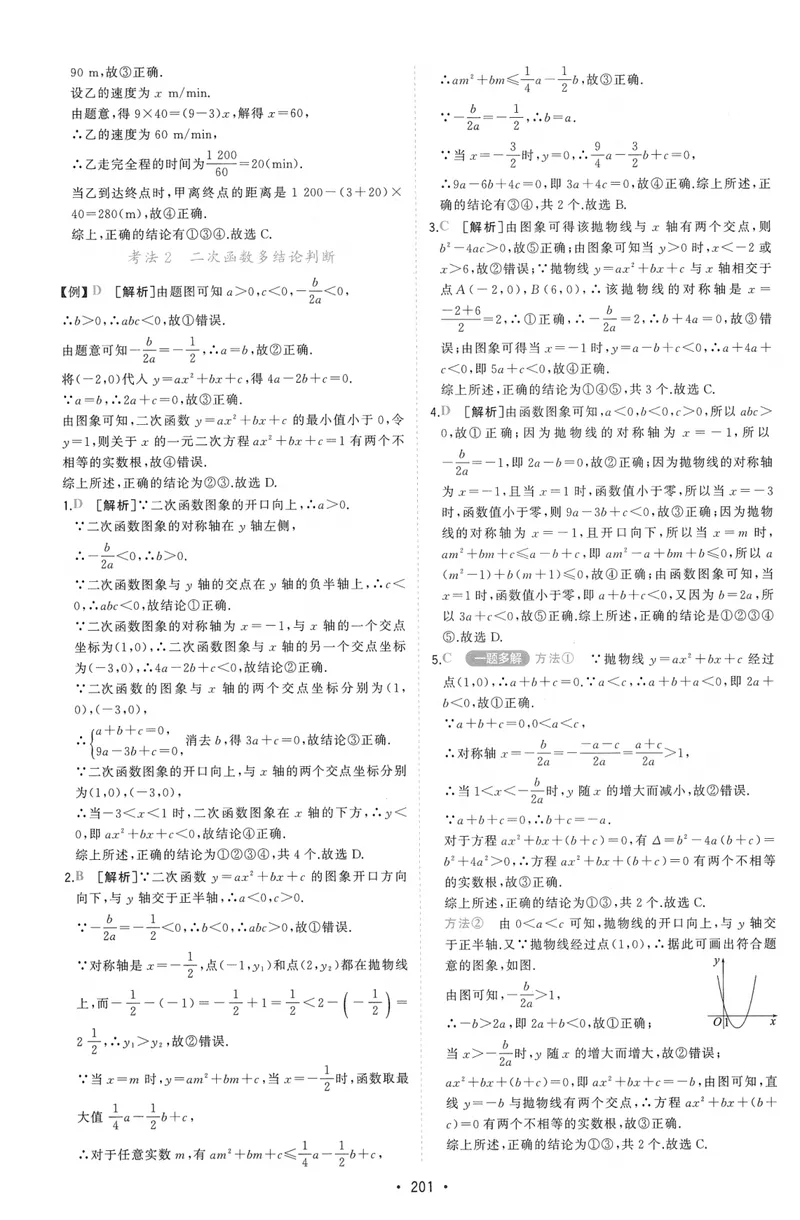 90 m,故③正确.
设乙的速度为 x m/min.
由题意,得 9×40=(9−3)x,解得 x=60,
∴乙的速度为 60 m/min,
∴乙走完全程的时间为 1 200/60=20(min).
当乙到达终点时,甲离终点的距离是 1 200−(3+20)×
40=280(m),故④正确.
综上,正确的结论有①③④.故选 C.
考法 2 二次函数多结论判断
【例】D [解析]由题图可知 a>0,c<0,−b/2a<0,
∴b>0,∴abc<0,故①错误.
由题意可知−b/2a=−1/2,∴a=b,故②正确.
将(−2,0)代入 y=ax²+bx+c,得 4a−2b+c=0.
∵a=b,∴2a+c=0,故③正确.
由图象可知,二次函数 y=ax²+bx+c 的最小值小于 0,令
y=1,则关于 x 的一元二次方程 ax²+bx+c=1 有两个不
相等的实数根,故④错误.
综上所述,正确的结论为②③.故选 D.
1.D [解析]∵二次函数图象的开口向上,∴a>0.
∵二次函数图象的对称轴在 y 轴左侧,
∴−b/2a<0,∴b>0.
∵二次函数图象与 y 轴的交点在 y 轴的负半轴上,∴c<
0,∴abc<0,故结论①正确.
∵二次函数图象的对称轴为 x=−1,与 x 轴的一个交点
坐标为(1,0),∴二次函数图象与 x 轴的另一个交点坐标
为(−3,0),∴4a−2b+c<0,故结论②正确.
∵二次函数的图象与 x 轴的两个交点坐标分别为(1,
0),(−3,0),
∴{a+b+c=0, 9a−3b+c=0, 消去 b,得 3a+c=0,故结论③正确.
∵二次函数图象的开口向上,与 x 轴的两个交点坐标分别
为(1,0),(−3,0),
∴当−3<x<1 时,二次函数图象在 x 轴的下方,∴y<
0,即 ax²+bx+c<0,故结论④正确.
综上所述,正确的结论为①②③④,共 4 个.故选 D.
2.B [解析]∵二次函数 y=ax²+bx+c 的图象开口方向
向下,与 y 轴交于正半轴,∴a<0,c>0.
∵−b/2a=−1/2<0,∴b<0,∴abc>0,故①错误.
∵对称轴是 x=−1/2,点(−1,y₁)和点(2,y₂)都在抛物线
上,而−1/2−(−1)=−1/2+1=1/2<2−(−1/2)=
2 1/2,∴y₁>y₂,故②错误.
∵当 x=m 时,y=am²+bm+c,当 x=−1/2时,函数取最
大值 1/4a−1/2b+c,
∴对于任意实数 m,有 am²+bm+c≤1/4a−1/2b+c,
∴am²+bm≤1/4a−1/2b,故③正确.
∵−b/2a=−1/2,∴b=a.
∵当 x=−3/2时,y=0,∴9/4a−3/2b+c=0,
∴9a−6b+4c=0,即 3a+4c=0,故④正确.综上所述,正
确的结论有③④,共 2 个.故选 B.
3.C [解析]由图象可得该抛物线与 x 轴有两个交点,则
b²−4ac>0,故⑤正确;由图象可知当 y>0 时,x<−2 或
x>6,故②错误;∵抛物线 y=ax²+bx+c 与 x 轴相交于
点 A(−2,0),B(6,0),∴该抛物线的对称轴是 x=
−2+6/2=2,∴①正确,∴−b/2a=2,∴b+4a=0,故③错
误;由图象可得当 x=−1 时,y=a−b+c<0,∴a+4a+
c<0,即 5a+c<0,故④正确.
综上所述,正确的结论为①④⑤,共 3 个.故选 C.
4.D [解析]由函数图象可知,a<0,b<0,c>0,所以 abc>
0,故①正确;因为抛物线的对称轴为 x=−1,所以
−b/2a=−1,即 2a−b=0,故②正确;因为抛物线的对称轴
为 x=−1,且当 x=1 时,函数值小于零,所以当 x=−3
时,函数值小于零,则 9a−3b+c<0,故③正确;因为抛物
线的对称轴为 x=−1,且开口向下,所以当 x=m 时,
am²+bm+c≤a−b+c,即 am²−a+bm+b≤0,所以 a
(m²−1)+b(m+1)≤0,故④正确;由函数图象可知,当
x=1 时,函数值小于零,即 a+b+c<0,又因为 b=2a,所
以 3a+c<0,故⑤正确.综上所述,正确的结论是①②③④
⑤.故选 D.
5.C 一题多解 方法① ∵抛物线 y=ax²+bx+c 经过
点(1,0),∴a+b+c=0.∵a<c,∴a+b+a<0,即 2a+
b<0,故①正确.
∵a+b+c=0,0<a<c,
∴对称轴 x=−b/2a=−−a−c/2a=a+c/2a>1,
∴当 1<x<−b/2a时,y 随 x 的增大而减小,故②错误.
∵a+b+c=0,∴b+c=−a.
对于方程 ax²+bx+(b+c)=0,有 Δ=b²−4a(b+c)=
b²+4a²>0,∴方程 ax²+bx+(b+c)=0 有两个不相等
的实数根,故③正确.
综上所述,正确的结论为①③,共 2 个.故选 C.
方法② 由 0<a<c 可知,抛物线的开口向上,与 y 轴交
于正半轴.又∵抛物线经过点(1,0),∴据此可画出符合题
意的图象,如图.
由图可知,−b/2a>1,
∴−b>2a,即 2a+b<0,故①正确;
当 x>−b/2a时,y 随 x 的增大而增大,故②错误;
y
O 1 x
ax²+bx+(b+c)=0,即 ax²+bx+c=−b,由图可知,直
线 y=−b 与抛物线有两个交点,∴方程 ax²+bx+(b+
c)=0 有两个不相等的实数根,故③正确.
综上所述,正确的结论为①③,共 2 个.故选 C.
• 201 •